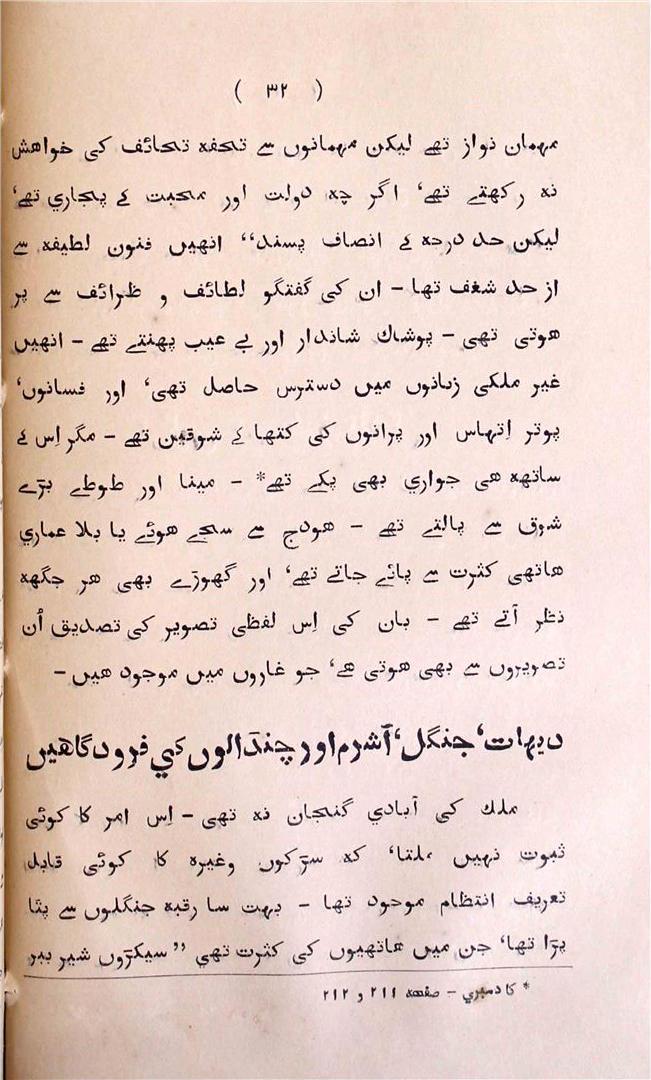 ( ۳۲ )
مہمان نواز تھے لیکن مہمانوں سے تحفہ تحائف کی خواھش
نہ رکھتے تھے‘ اگر چہ دولت اور محبت کے پجاري تھے‘
لیکن حد درجہ کے انصاف پسند‘‘ انھیں فنون لطیفہ سے
از حد شغف تھا - ان کی گفتگو لطائف و ظرائف سے پر
ھوتی تھی - پوشاك شاندار اور بے عیب پھنتے تھے - انھیں
غیر ملکی زبانوں میں دسترس حاصل تھی‘ اور فسانوں‘
پوتر اِتھاس اور پرانوں کی کتھا کے شوقین تھے - مگر اِس کے
ساتھہ ھی جواري بھی پکے تھے* - مینا اور طوطے بڑے
شوق سے پالتے تھے - ھودج سے سجے ھوئے یا بلا عماري
ھاتھی کثرت سے پائے جاتے تھے‘ اور گھوڑے بھی ھر جگھہ
نظر آتے تھے - بان کی اِس لفظی تصویر کی تصدیق اُن
تصویروں سے بھی ھوتی ھے‘ جو غاروں میں موجود ھیں -
دیہات‘ جنگل‘ آشرم اور چنڈالوں کي فرودگاھیں
ملك کی آبادي گنجان نہ تھی - اِس امر کا کوئی
ثبوت نہیں ملتا‘ کہ سڑکوں وغیرہ کا کوئی قابل
تعریف انتظام موجود تھا - بہت سا رقبہ جنگلوں سے پٹا
پڑا تھا‘ جن میں ھاتھیوں کی کثرت تھي ’’ سیکڑوں شیر ببر
* کادمبري - صفحہ ۲۱۱ و ۲۱۲